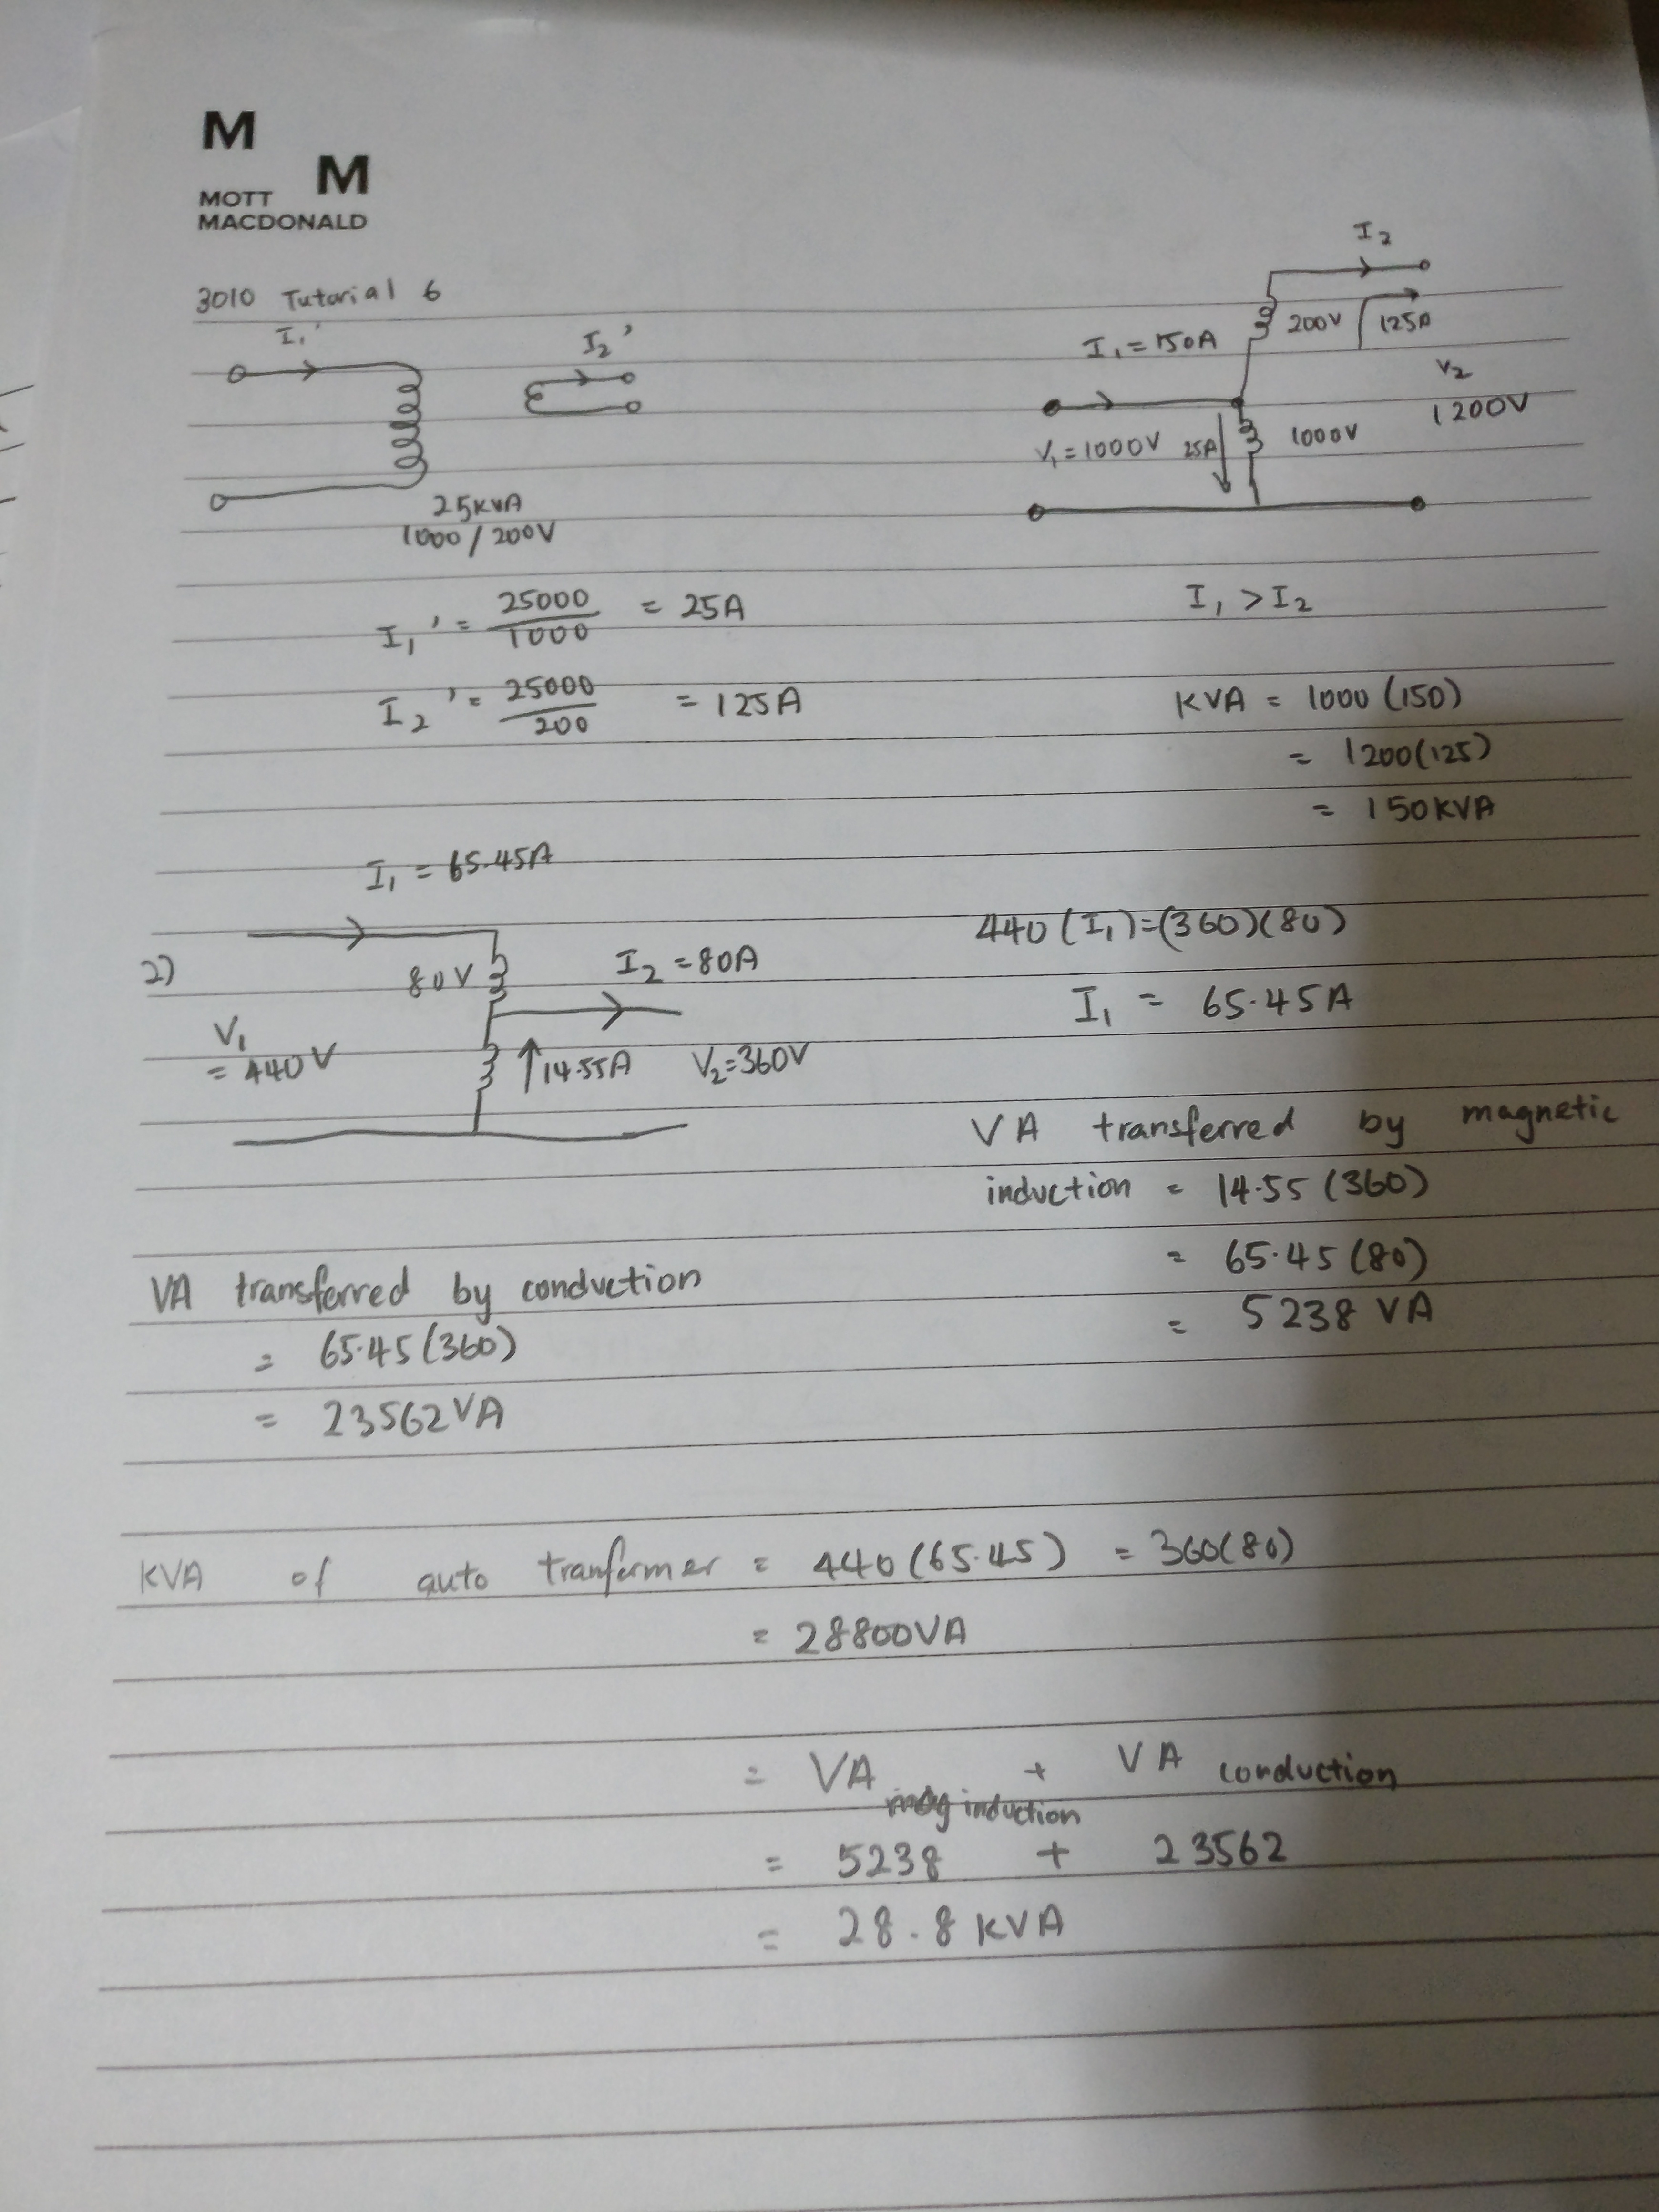 M
M
MOTT
MACDONALD
3010 Tutorial 6
I₁'
I₂'
25KVA
1000/200V
I₂
I₁ = 150A
200V
125A
V₂
1200V
V₁ = 1000V
25A
1000V
I₁' = 25000/1000 = 25A
I₁ > I₂
I₂' = 25000/200 = 125A
KVA = 1000 (150)
= 1200(125)
= 150KVA
2)
I₁ = 65.45A
80V
I₂ = 80A
V₁
= 440V
14.55A
V₂=360V
440(I₁)=(360)(80)
I₁ = 65.45A
VA transferred by magnetic
induction = 14.55 (360)
= 65.45 (80)
= 5238 VA
VA transferred by conduction
= 65.45(360)
= 23562VA
KVA of auto tranformer = 440(65.45) = 360(80)
= 28800VA
= VA mag induction + VA conduction
= 5238 + 23562
= 28.8 KVA